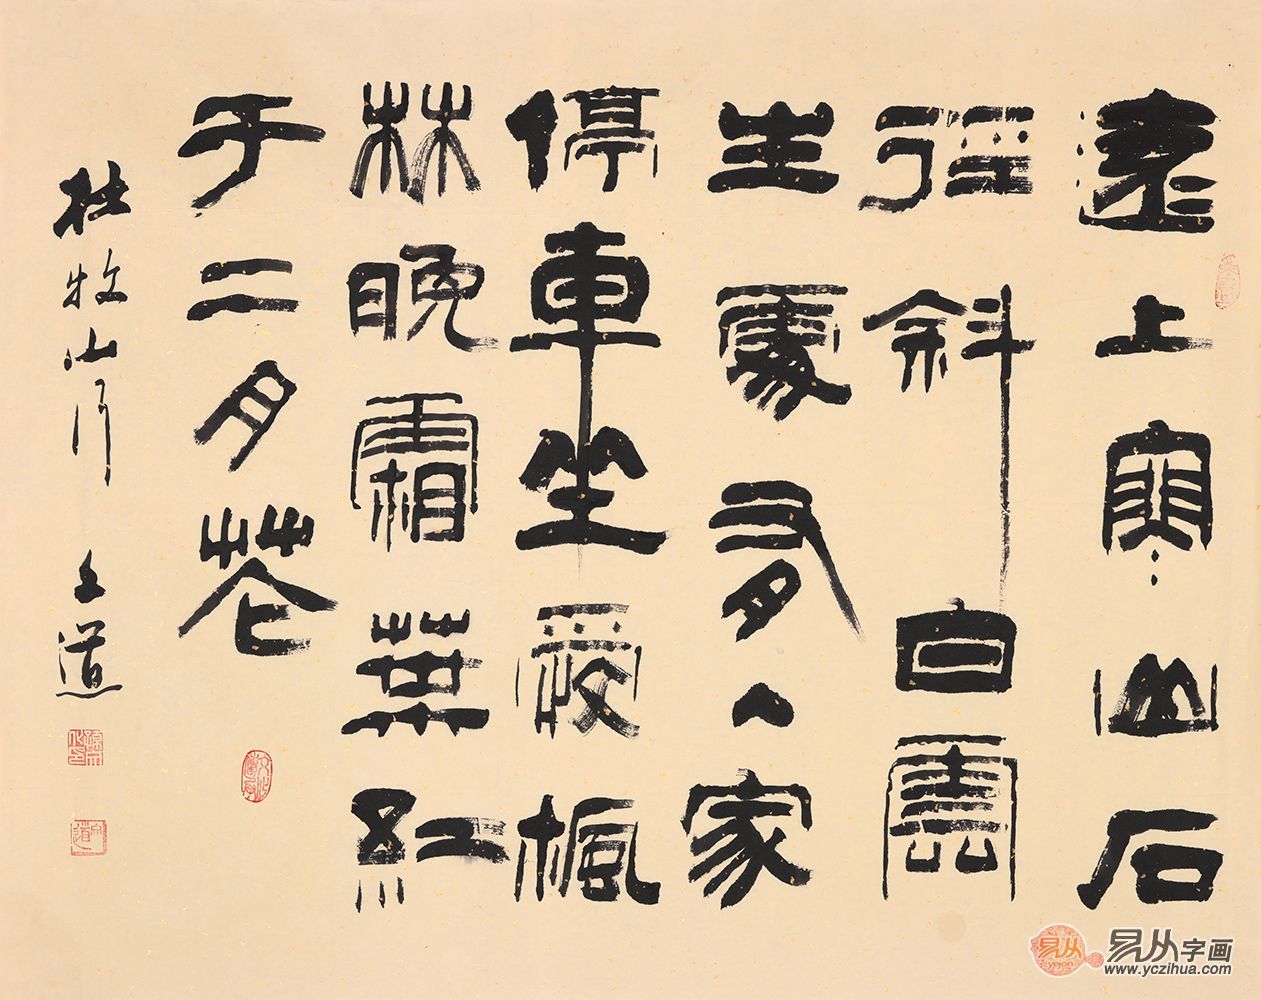 遠上寒山石
徑斜白雲
生處有人家
停車坐愛楓
林晚霜葉紅
于二月花
杜牧山行 道
易从
易从字画
www.yczihua.com